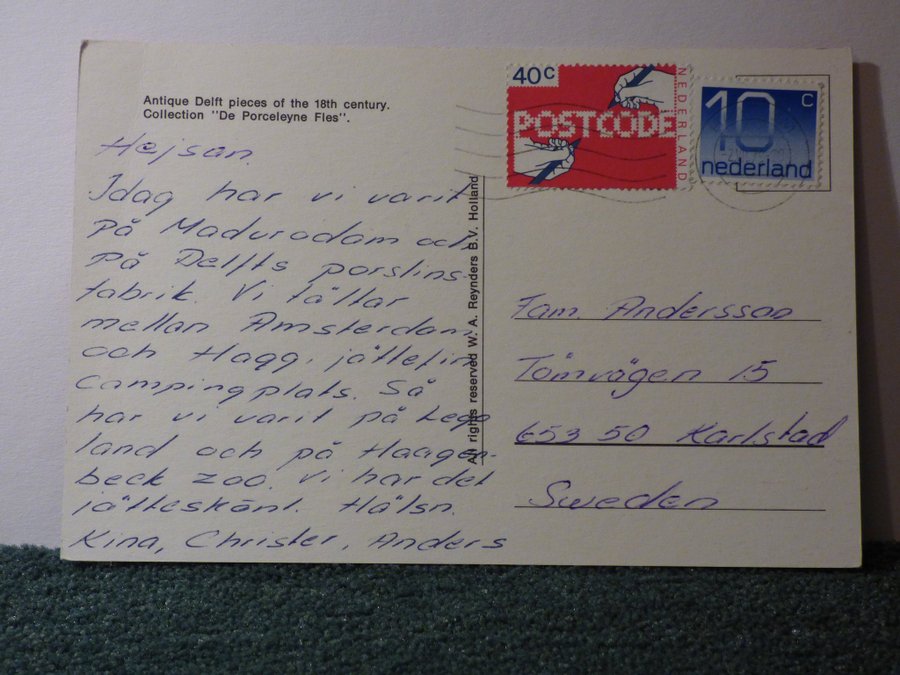 Antique Delft pieces of the 18th century.
Collection "De Porceleyne Fles".
Hejsan.
Idag har vi varit
på Madurodam och
på Delfts porslins-
fabrik. Vi tältar
mellan Amsterdam
och Hagg, jättefin
campingplats. Så
har vi varit på Lego
land och på Haagen-
beck zoo. Vi har det
jätteskönt. Hälsn.
Kina, Christer, Anders
All rights reserved W. A. Reynders B.V. Holland
40c
POSTCODE
NEDERLAND
10 c
nederland
Fam. Andersson
Tömvägen 15
653 50 Karlstad
Sweden